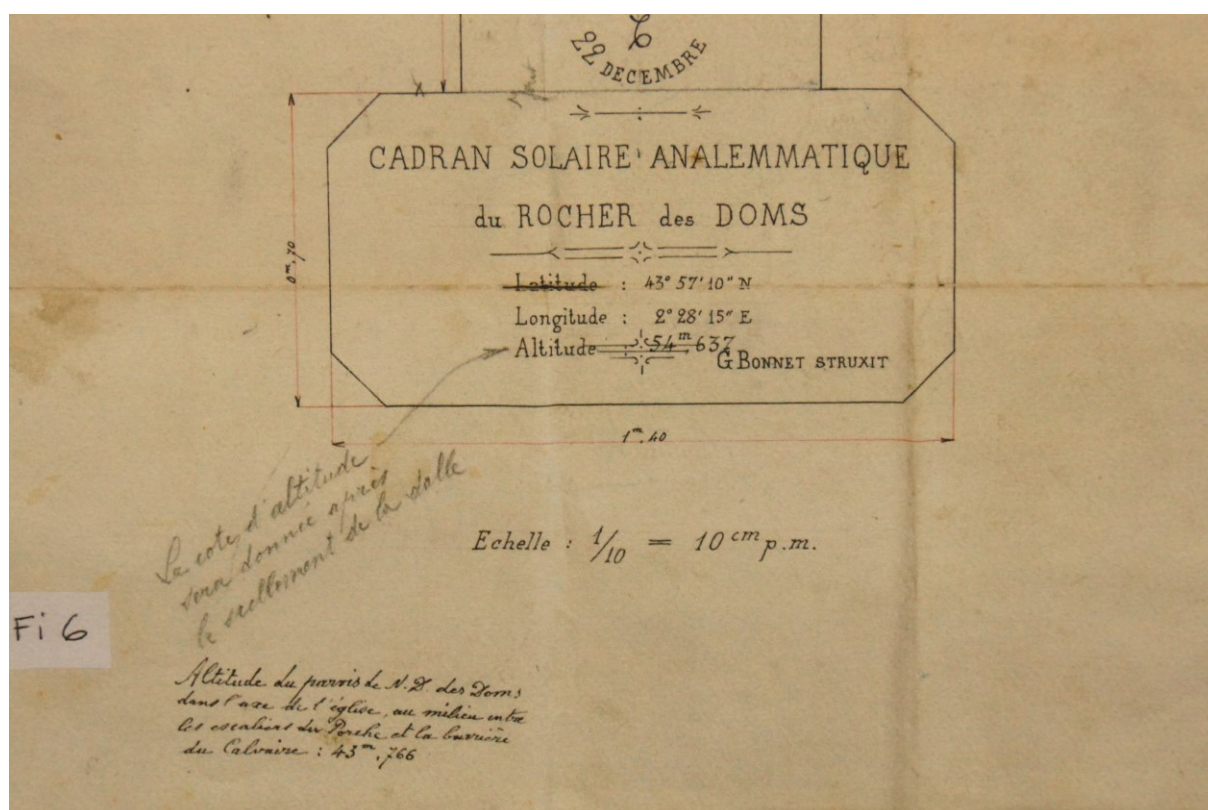 22 DECEMBRE
CADRAN SOLAIRE ANALEMMATIQUE
du ROCHER des DOMS
Latitude : 43° 57' 10" N
Longitude : 2° 28' 15" E
Altitude 54ᵐ 637
G BONNET STRUXIT
0ᵐ,70
1ᵐ,40
La cote d'altitude
sera donnée après
le scellement de la dalle
Echelle : 1/10 = 10 cm p.m.
Fi 6
Altitude du parvis de N.D. des Doms
dans l'axe de l'église, au milieu entre
les escaliers du Porche et la barrière
du Calvaire : 43ᵐ,766